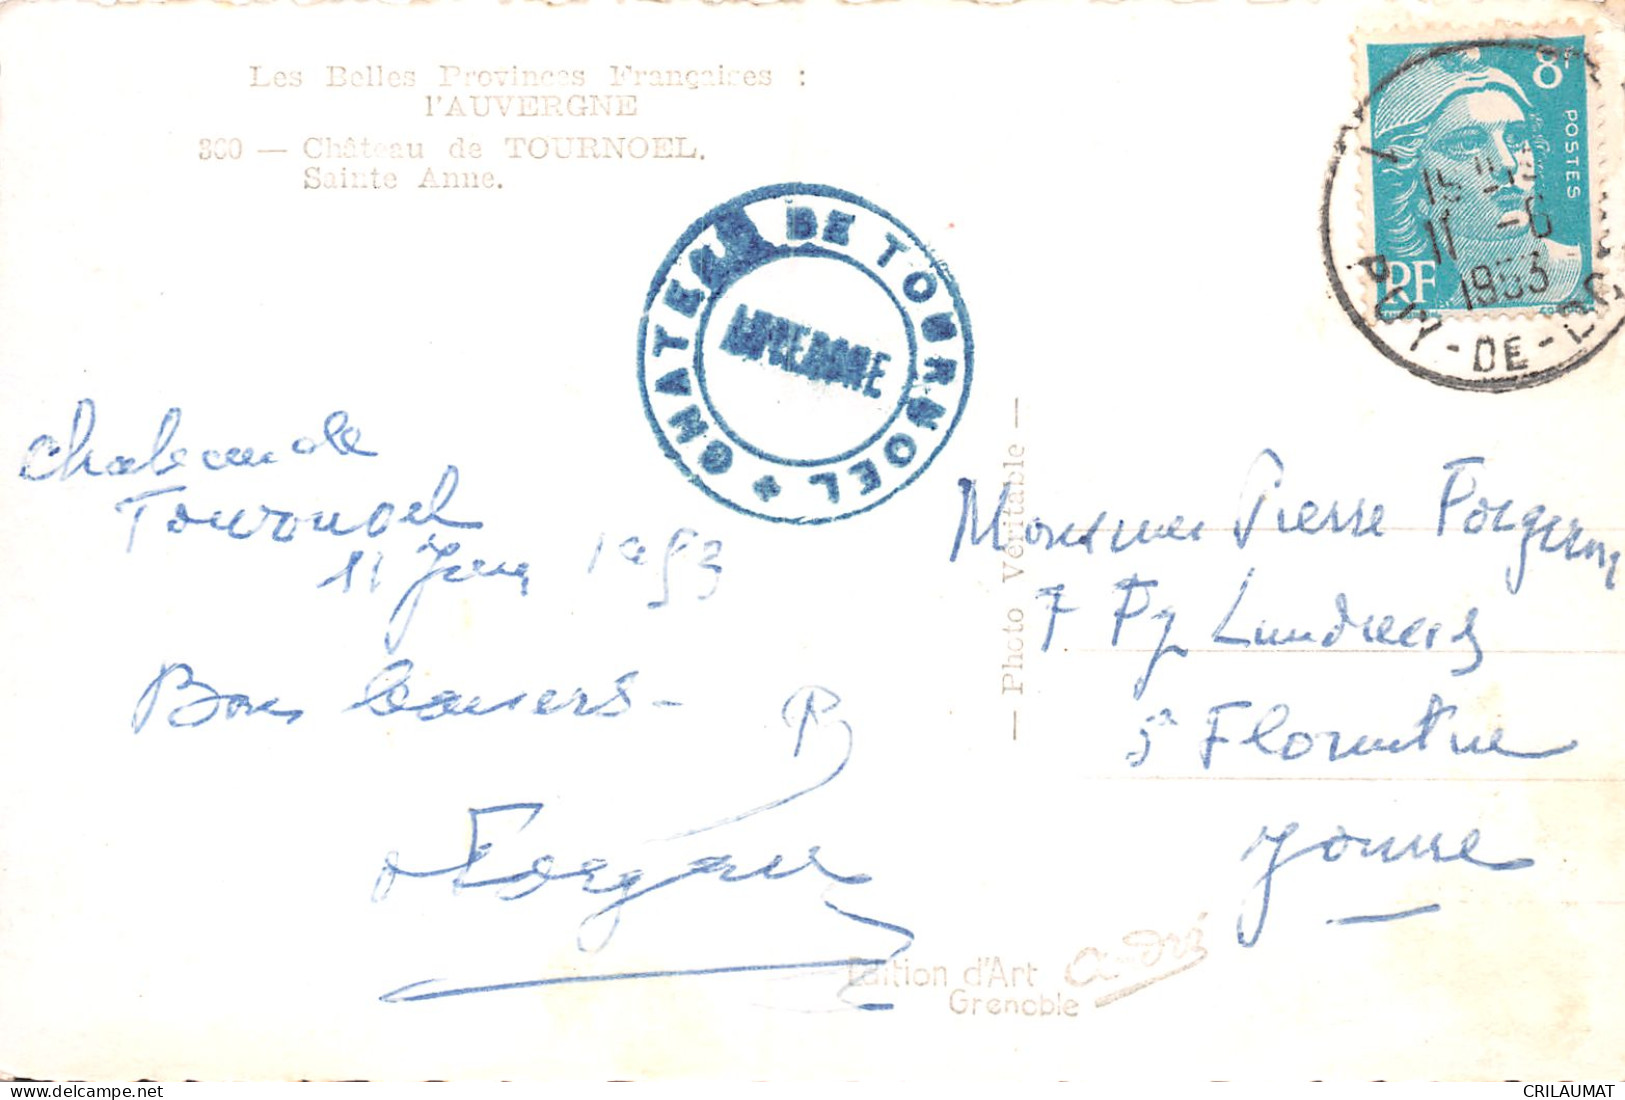 Les Belles Provinces Françaises :
l'AUVERGNE
360 — Château de TOURNOEL.
Sainte Anne.
CHATEAU DE TOURNOEL
8F
POSTES
RF
15
11 -6
1953
PUY-DE-DOME
Chateau de
Tournoel
11 Juin 1953
Bons baisers -
— Photo Véritable —
Monsieur Pierre
7 Fg
St Florentin
Yonne
Edition d'Art André
Grenoble
www.delcampe.net
CRILAUMAT